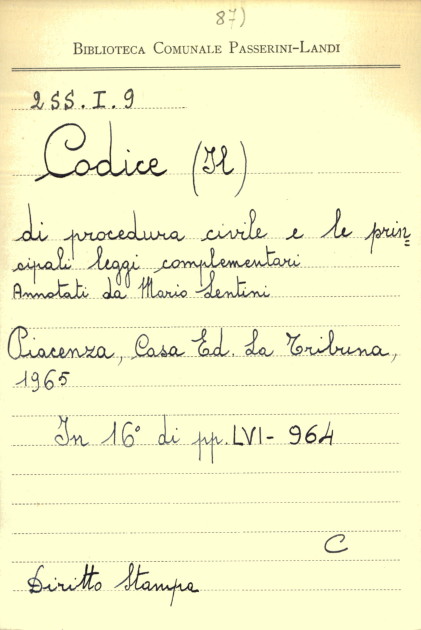 87)
BIBLIOTECA COMUNALE PASSERINI-LANDI
2SS.I.9
Codice (Il)
di procedura civile e le prin=
cipali leggi complementari
Annotati da Mario Lentini
Piacenza, Casa Ed. La Tribuna,
1965
In 16° di pp. LVI-964
C
Diritto Stampa